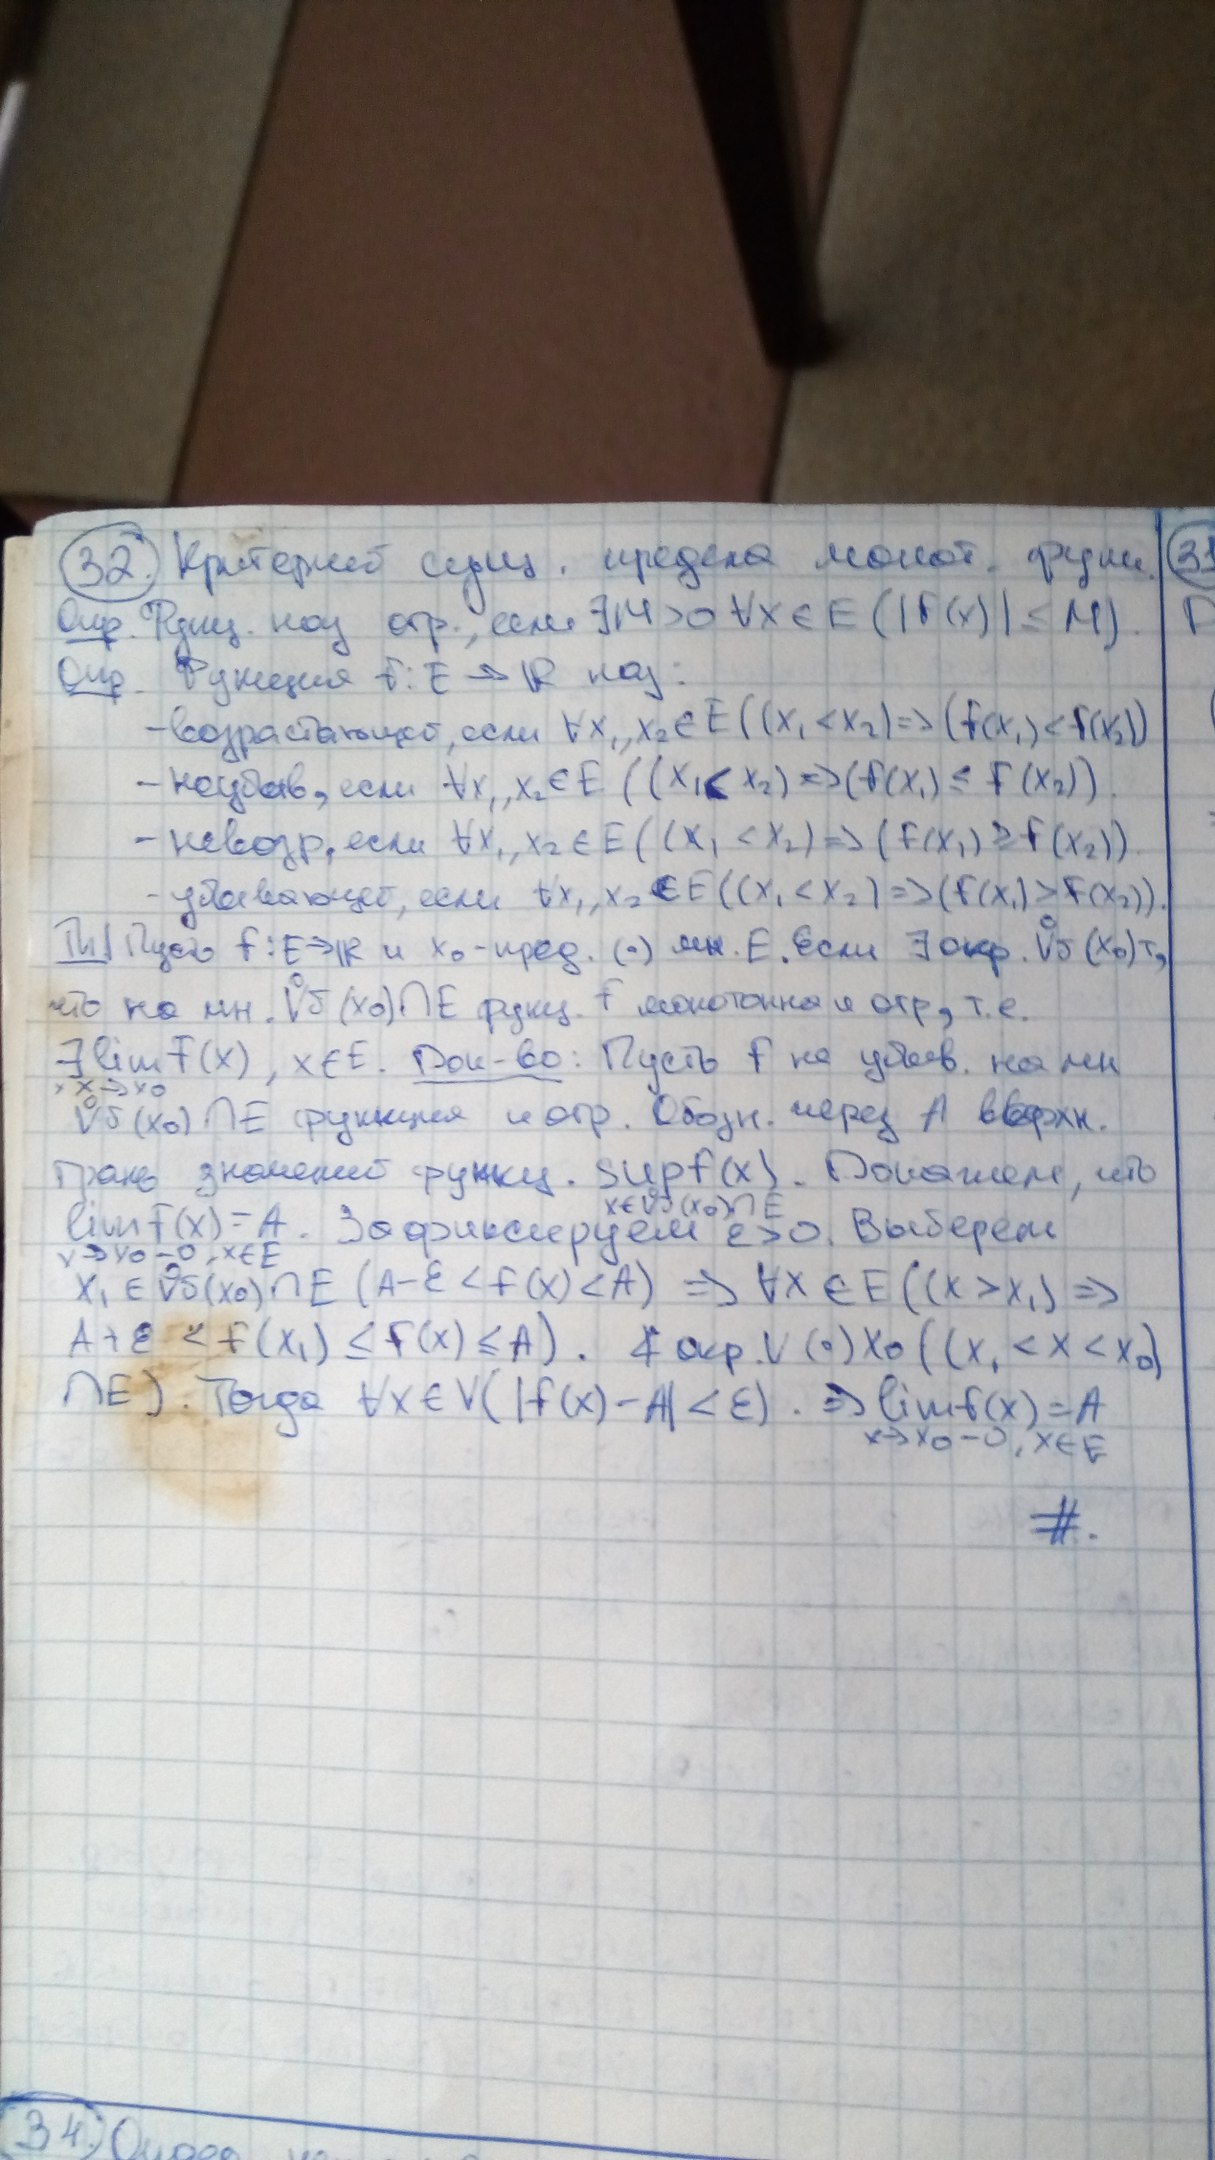 32. Критерий сущ. предела монот. функц.
31
Опр. Функц. наз огр., если ∃M>0 ∀x∈E (|f(x)|≤M).
Опр. Функция f:E→ℝ наз:
-возрастающей, если ∀x₁,x₂∈E((x₁<x₂)=>(f(x₁)<f(x₂))
-неубыв, если ∀x₁,x₂∈E((x₁<x₂)=>(f(x₁)≤f(x₂)).
-невозр, если ∀x₁,x₂∈E((x₁<x₂)=>(f(x₁)≥f(x₂)).
-убывающей, если ∀x₁,x₂∈E((x₁<x₂)=>(f(x₁)>f(x₂)).
Пусть f:E→ℝ и x₀-пред. (•) мн. E. Если ∃ окр. V̊δ(x₀) т,
что на мн. V̊δ(x₀)∩E функц. f монотонна и огр, т.е.
∃lim f(x), x∈E. Док-во: Пусть f не убыв. на мн
x→x₀
V̊δ(x₀)∩E функция и огр. Обозн. через A верхн.
грань значений функц. sup f(x). Покажем, что
x∈V̊δ(x₀)∩E
lim f(x)=A. Зафиксируем ε>0. Выберем
x→x₀-0, x∈E
x₁∈V̊δ(x₀)∩E (A-ε<f(x)<A) => ∀x∈E((x>x₁)=>
A+ε<f(x₁)≤f(x)≤A). ∢ окр. V (•) x₀ ((x₁<x<x₀)
∩E). Тогда ∀x∈V(|f(x)-A|<ε). => lim f(x)=A
x→x₀-0, x∈E
#.
34.